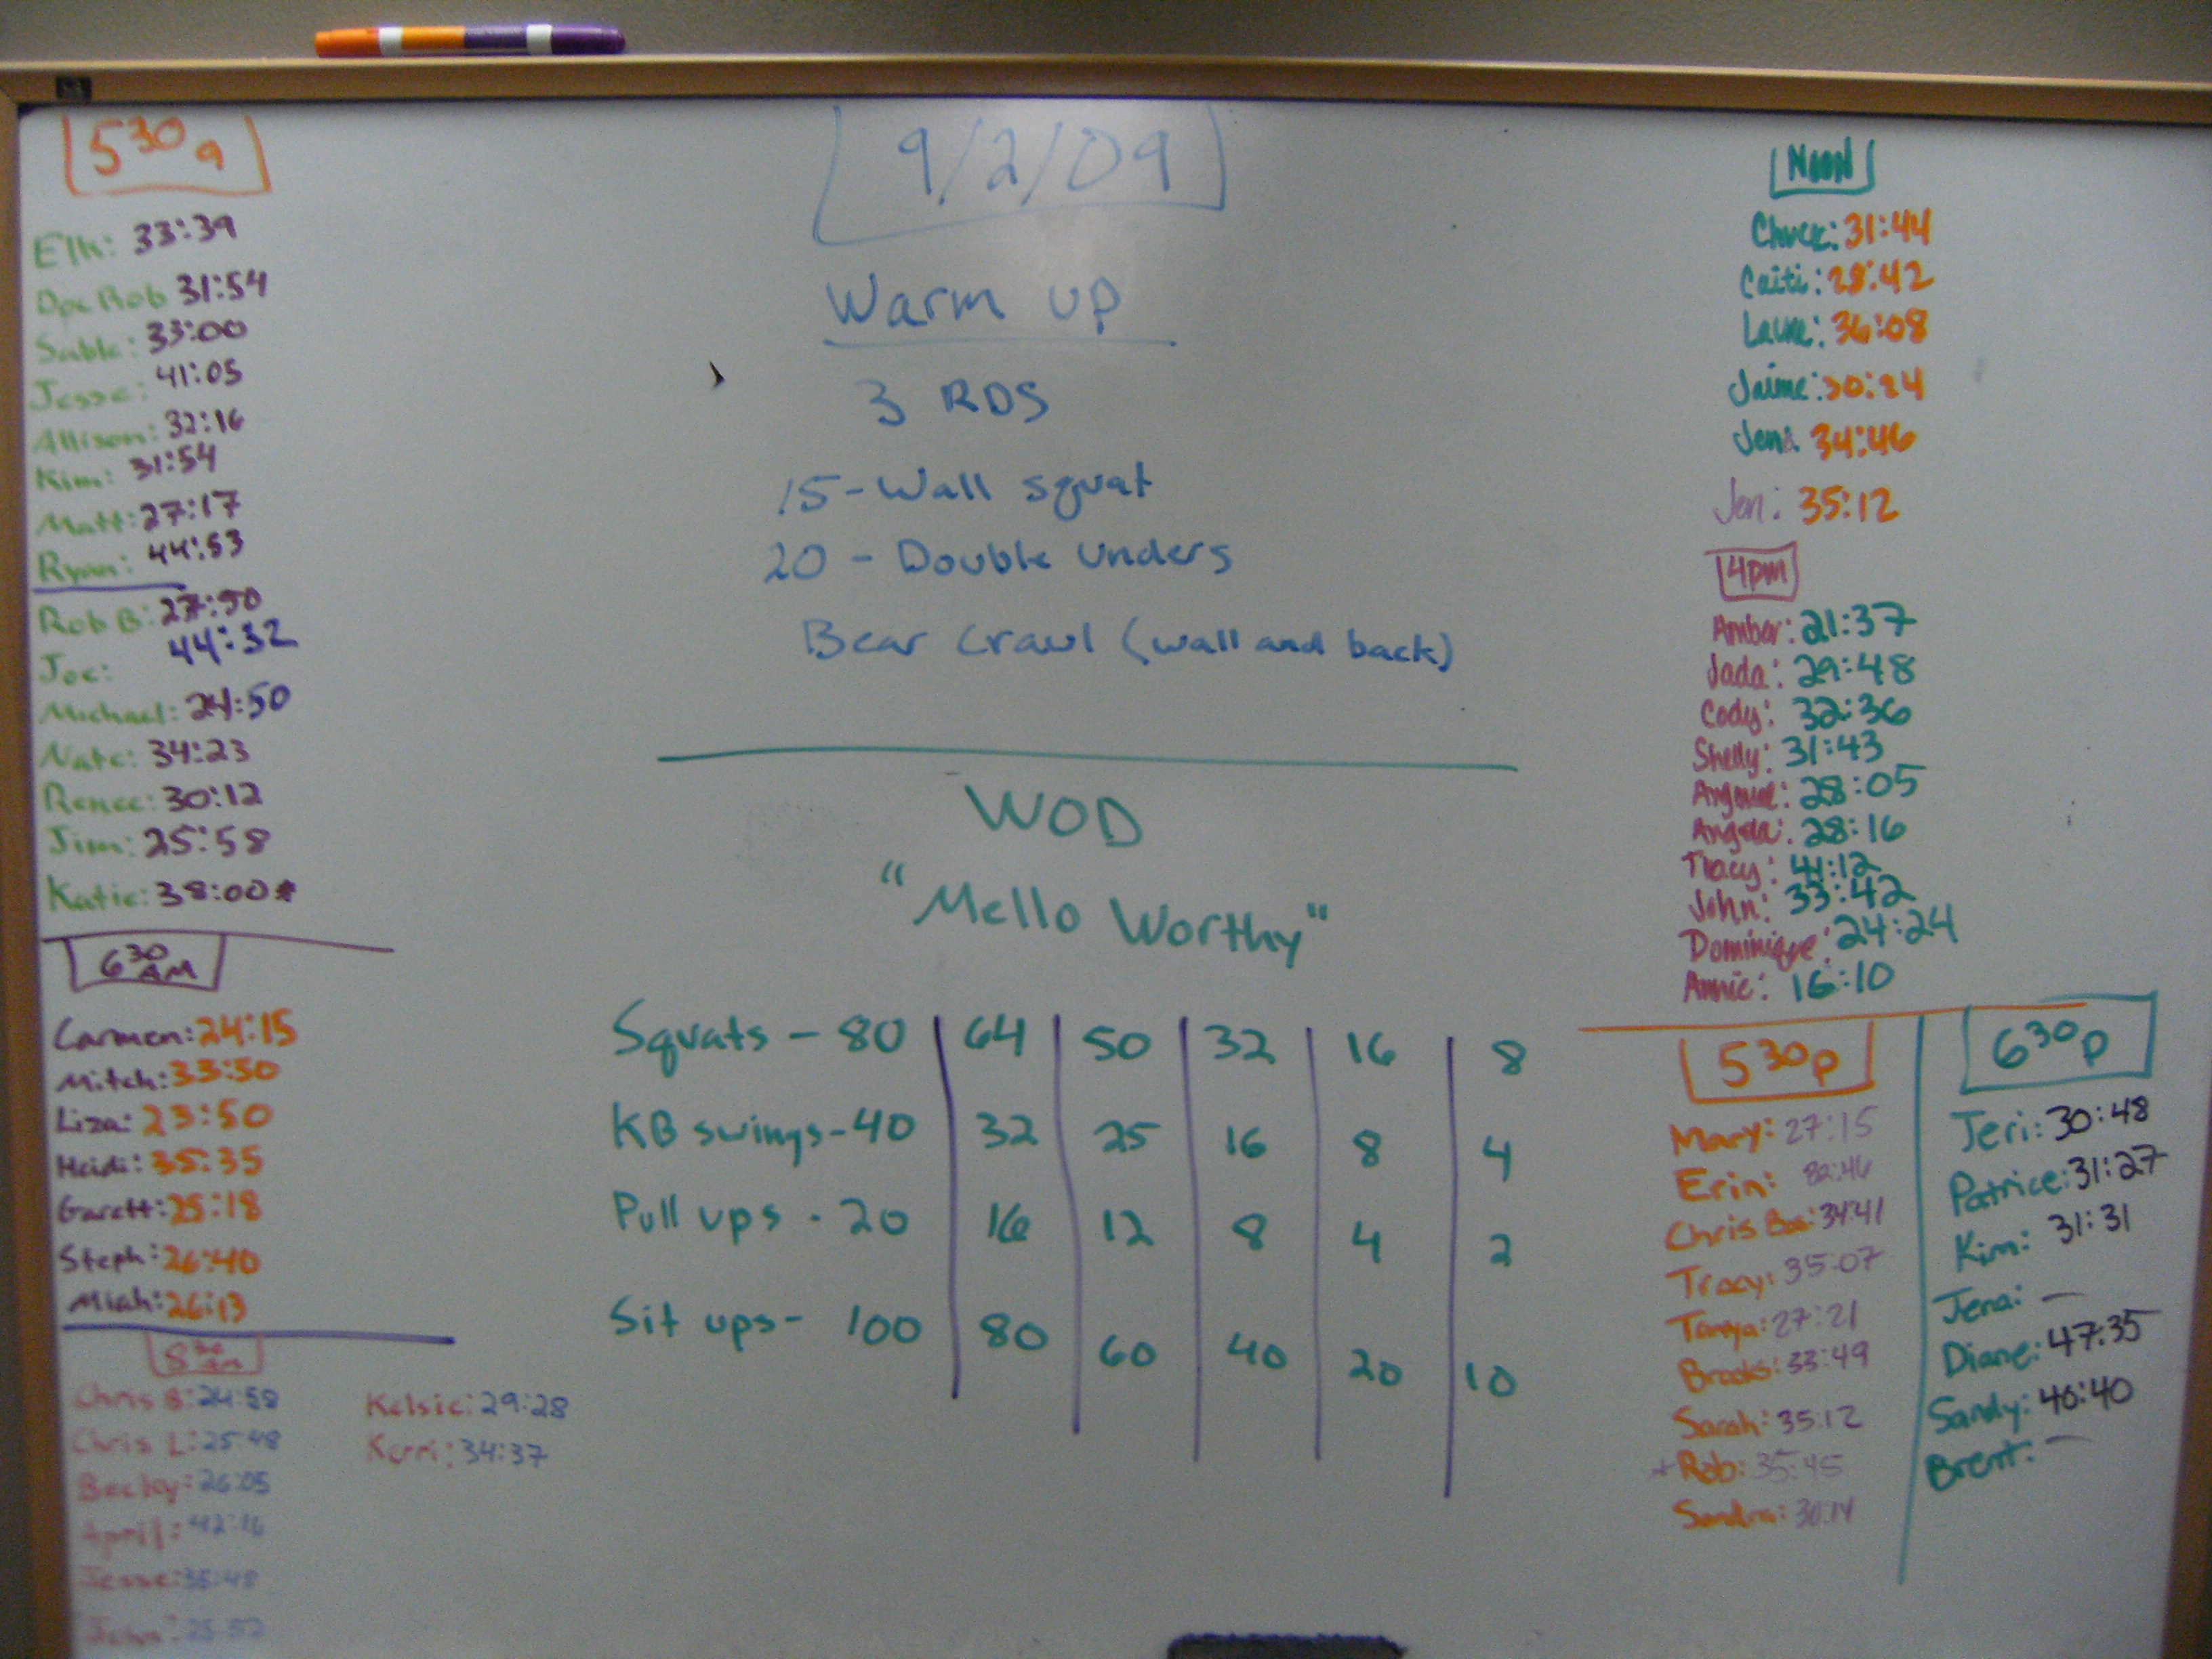 9/2/09
Warm up
3 RDS
15 - Wall squat
20 - Double unders
Bear Crawl (wall and back)
WOD
"Mello Worthy"
Squats - 80 64 50 32 16 8
KB swings - 40 32 25 16 8 4
Pull ups - 20 16 12 8 4 2
Sit ups - 100 80 60 40 20 10
5 30 a
33:39
Rob 31:54
Sable: 33:00
Jesse: 41:05
Allison: 32:16
Kim: 31:54
Matt: 27:17
Ryan: 44:53
Rob B: 27:50
Joe: 44:32
Michael: 24:50
Nate: 34:23
Renee: 30:12
Jim: 25:58
Katie: 38:00*
6 30 AM
Carmen: 24:15
Mitch: 33:50
Liza: 23:50
Heidi: 35:35
Garett: 25:18
Steph: 26:40
Miah: 26:13
8 30 am
Chris B: 24:58
Chris L: 25:48
Becky: 26:05
April: 42:16
Jesse: 35:48
John:
Kelsie: 29:28
Kerri: 34:37
Noon
Chuck: 31:44
Caiti: 28:42
36:08
Jaime:
Jena: 34:46
Jen: 35:12
4pm
Amber: 21:37
Jada: 29:48
Cody: 32:36
Shelly: 31:43
28:05
Angela: 28:16
Tracy: 41:12
John: 33:42
Dominique: 24:24
Annie: 16:10
5 30 p
Mary: 27:15
Erin:
Chris 34:41
Tracy: 35:07
Tanya: 27:21
Brooks: 33:49
Sarah: 35:12
Rob: 35:45
Sandra: 30:14
6 30 p
Jeri: 30:48
Patrice: 31:27
Kim: 31:31
Jena: —
Diane: 47:35
Sandy: 40:40
Brent: —